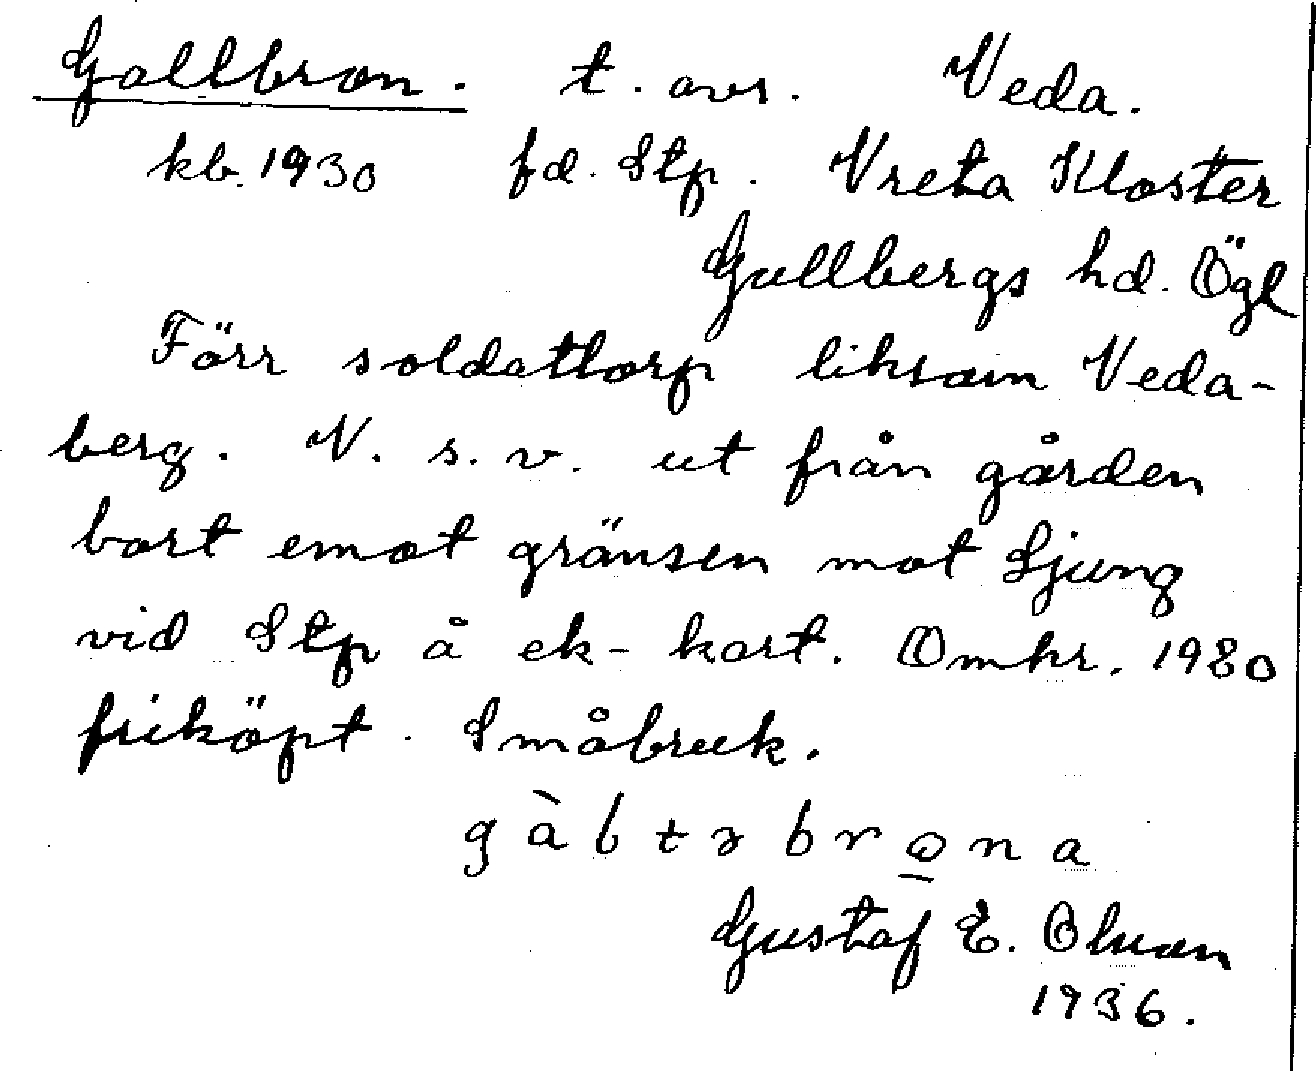 Gallbron. t. avs. Veda.
kb. 1930 fd. Stp. Vreta Kloster
Gullbergs hd. Ögl
Förr soldattorp liksom Veda-
berg. V. s. v. ut från gården
bort emot gränsen mot Ljung
vid Stp å ek-kart. Omkr. 1980
friköpt. Småbruk.
Gustaf E. Olson
1936.